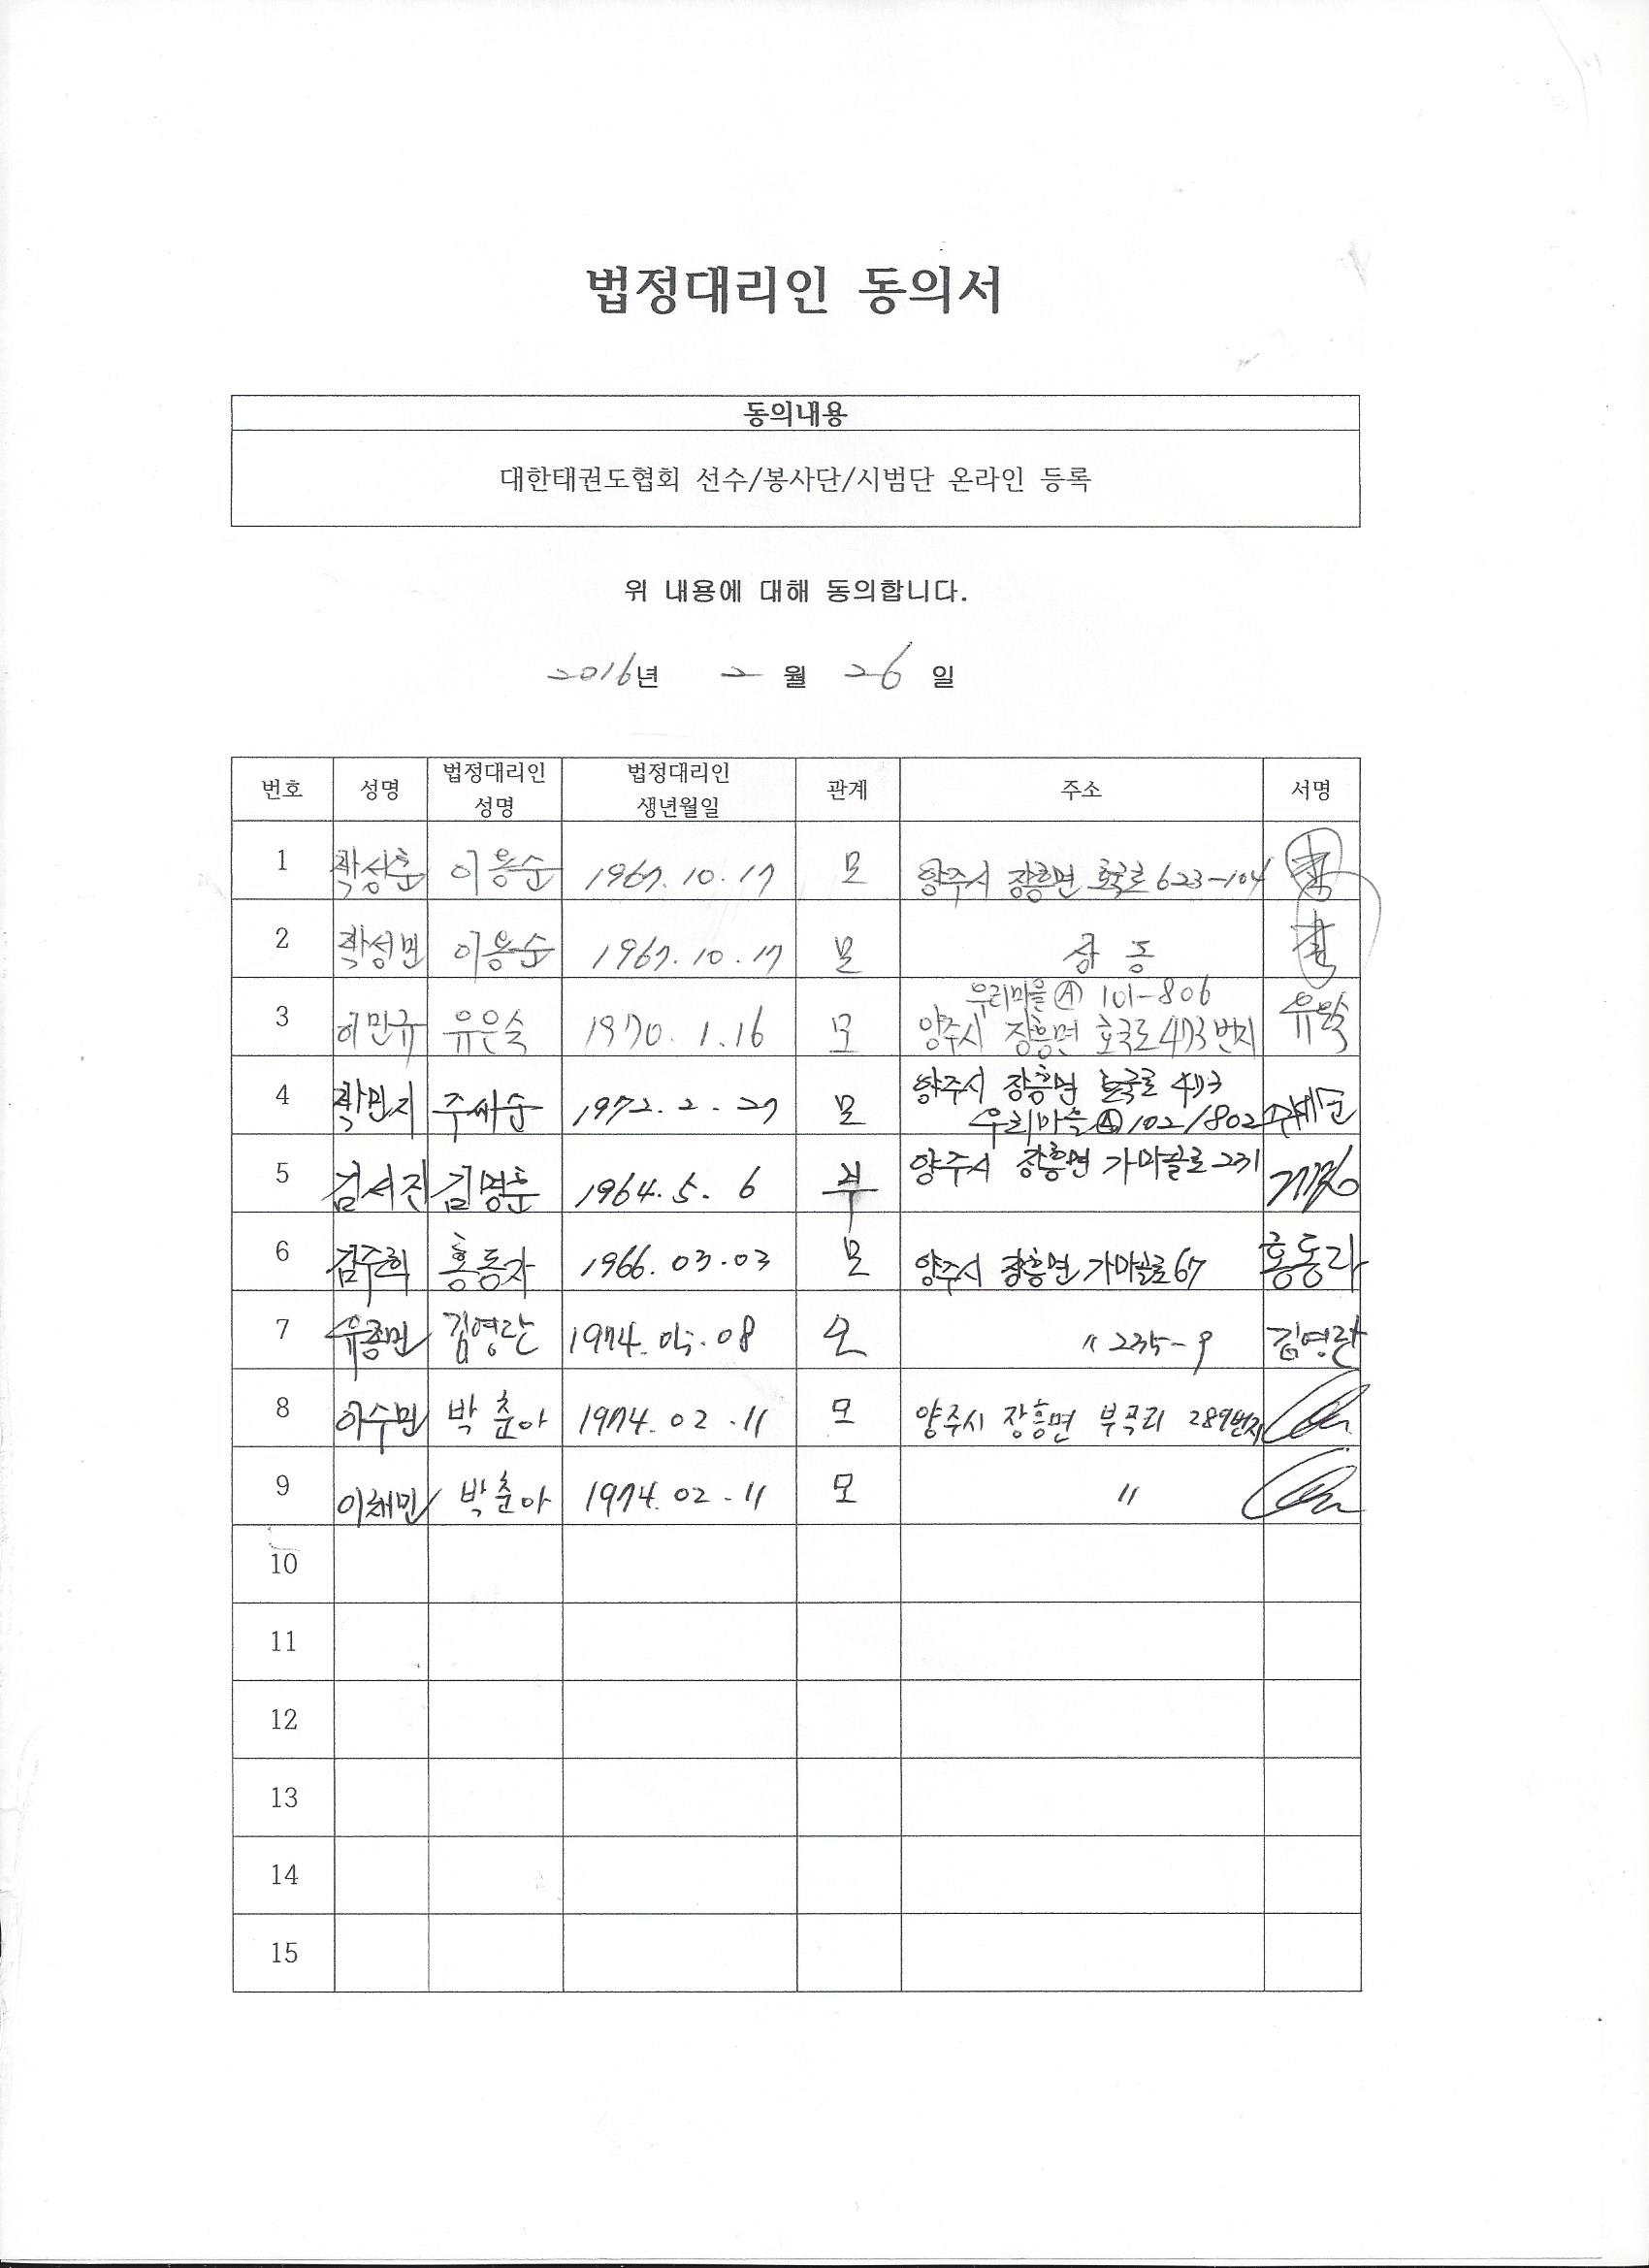 법정대리인 동의서
동의내용
대한태권도협회 선수/봉사단/시범단 온라인 등록
위 내용에 대해 동의합니다.
2016년 2 월 26 일
번호 성명 법정대리인 성명 법정대리인 생년월일 관계 주소 서명
1 곽성훈 이용순 1967. 10. 17 모 양주시 장흥면 호국로 623-104
2 곽성민 이용순 1967. 10. 17 모 상 동
3 이민규 유은숙 1970. 1. 16 모 우리마을Ⓐ 101-806
양주시 장흥면 호국로 473번지 유은숙
4 곽민지 1972. 2. 27 모 양주시 장흥면 호국로 473
우리마을Ⓐ 102/802
5 김서진 김명훈 1964. 5. 6 부 양주시 장흥면 가마골로 231
6 김주희 홍동자 1966. 03. 03 모 양주시 장흥면 가마골로 67 홍동자
7 유종민 김영란 1974. 05. 08 모 〃 235-9 김영란
8 이수민 박춘아 1974. 02. 11 모 양주시 장흥면 부곡리 289번지
9 이채민 박춘아 1974. 02. 11 모 〃
10
11
12
13
14
15